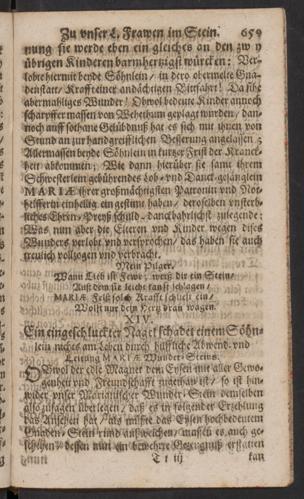 Zu vnser L. Frawen im Stein. 659
nung sie werde eben ein gleiches an den zwey
übrigen Kinderen barmhertzigst würcken: Ver-
lobte hiermit beyde Söhnlein / in dero obermelte Gna-
denstatt / Krafft einer andächtigen Bittfahrt! Da sihe
abermahliges Wunder! Obwol bedeute Kinder annoch
scharpffer massen von Wehethum geplagt wurden / dan-
noch auff solhane Gelübdnuß hat es sich mit ihnen von
Stund an zur handgreifflichen Besserung angelassen /
Allermassen beyde Söhnlein in kurtzer Frist der Kranck-
heit abkommen; Wie dann hierüber sie samt ihrem
Schwesterlein gebührendes Lob- und Danck-gesänglein
MARIÆ ihrer großmächtigsten Patronin vnd Not-
helfferin einhellig ein gestimt haben / deroselben vnsterb-
liches Ehren-Preyß schuld- danckbahrlichst zulegende:
Was nun aber die Elteren vnd Kinder wegen dises
Wunders verlobt vnd versprochen / das haben sie auch
treulich vollzogen vnd verbracht.
Mein Pilger,
Wann Lieb ist Fewr, wers dir ein Stein,
Auß dem sie leicht kanst schlagen,
MARIÆ Felß solch Kraffte schließt ein,
Wolst nur dein Hertz dran wagen.
XIV.
Ein eingeschluckter Nagel schadet einem Söhn-
lein nichts am Leben durch hülffliche Abwend. vnd
Leitung MARIÆ Wunder-Steins.
OBwol der edle Magnet dem Eysen mit aller Gewo-
genheit vnd Freundschafft zugethan ist / so ist hin-
wider vnser Marianischer Wunder-Stein demselben
also zusagen überlegen / daß es in folgender Erzehlung
das Ansehen hat / als müste das Eysen hochbedeutem
Gnaden-Stein rund außweichen / massen es auch ge-
schehen / dessen nun ein bewehrte Gezeugnuß erstatten
T t iij kan